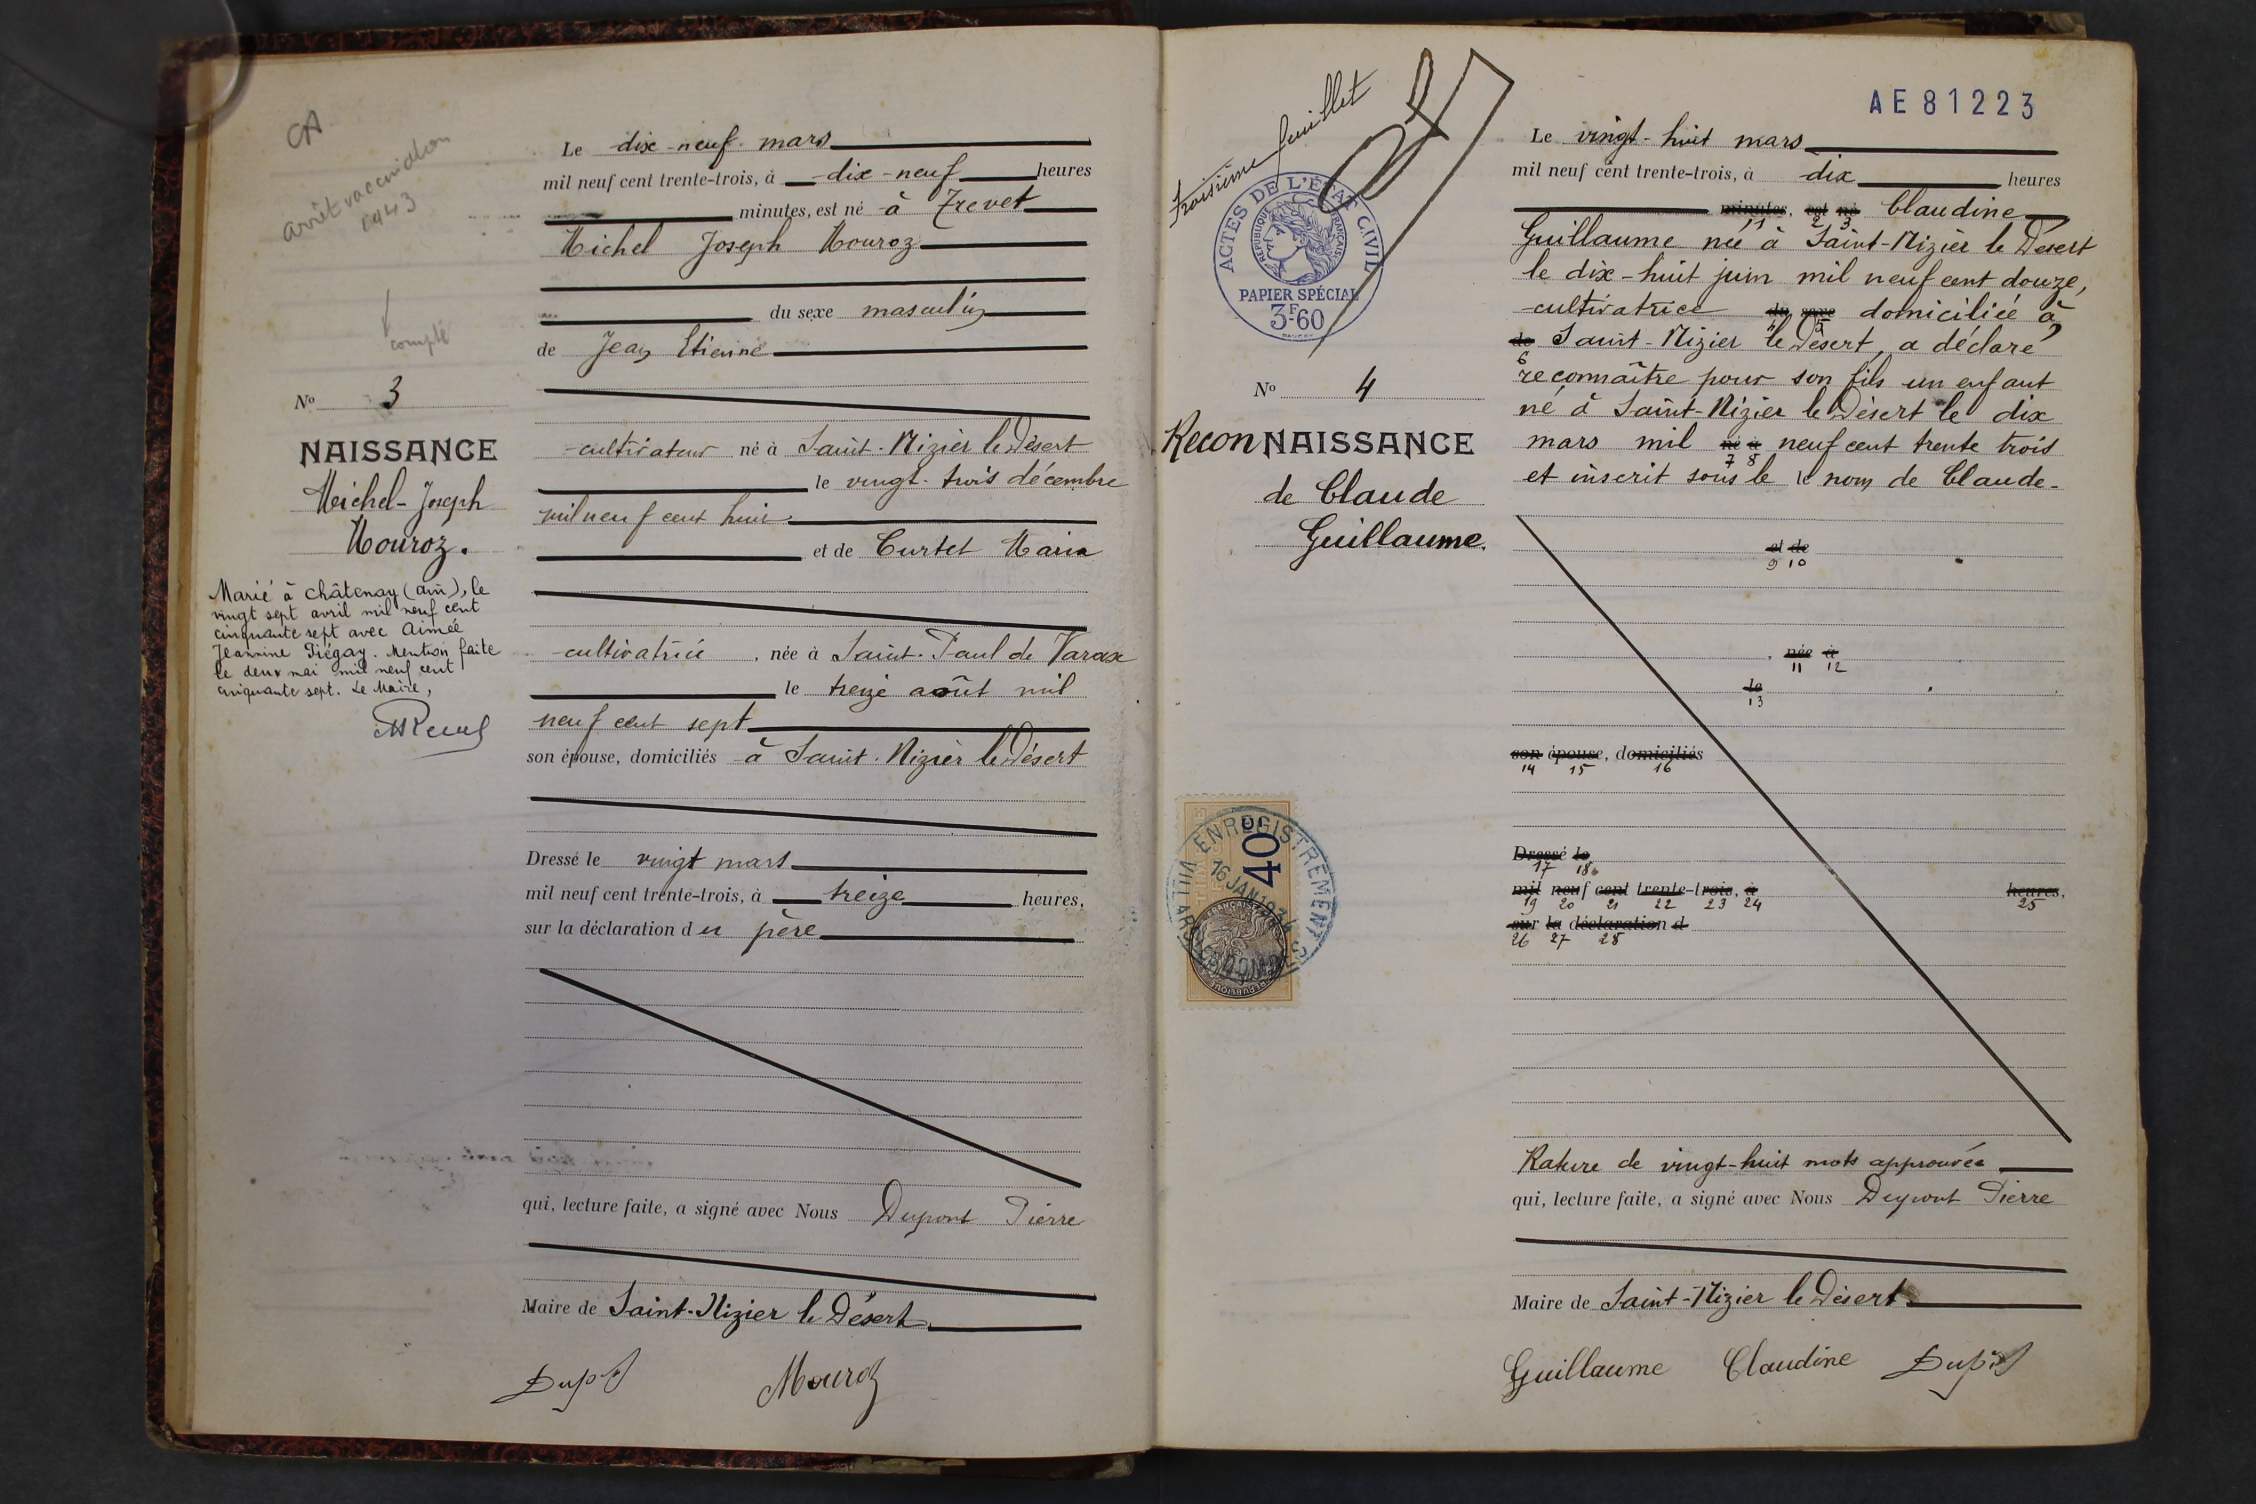 CA
arrêt vaccination
1943
complé
N° 3
NAISSANCE
Michel-Joseph
Mouroz.
Marié à Châtenay (ain), le
vingt sept avril mil neuf cent
cinquante sept avec Aimée
Jeannine Piégay. Mention faite
le deux mai mil neuf cent
cinquante sept. Le Maire,
Le dix-neuf mars
mil neuf cent trente-trois, à dix-neuf heures
minutes, est né à Frevet
Michel Joseph Mouroz
du sexe masculin
de Jean Etienne
cultivateur né à Saint-Nizier le Désert
le vingt-trois décembre
mil neuf cent huit
et de Curtet Maria
cultivatrice, née à Saint-Paul de Varax
le treize août mil
neuf cent sept
son épouse, domiciliés à Saint-Nizier le Désert
Dressé le vingt mars
mil neuf cent trente-trois, à treize heures,
sur la déclaration du père
qui, lecture faite, a signé avec Nous Dupont Pierre
Maire de Saint-Nizier le Désert
Dupont Mouroz
Troisième feuillet
ACTES DE L'ÉTAT CIVIL
RÉPUBLIQUE FRANÇAISE
PAPIER SPÉCIAL
3F.60
N° 4
ReconNAISSANCE
de Claude
Guillaume.
ENREGISTREMENT
VILLARS LES DOMBES
16 JAN 1934
40
AE 81223
Le vingt-huit mars
mil neuf cent trente-trois, à dix heures
minutes, est né Claudine
1 2 3
Guillaume née à Saint-Nizier le Désert
le dix-huit juin mil neuf cent douze,
cultivatrice du sexe domiciliée à
4 5
de Saint-Nizier le Désert, a déclaré
6
reconnaître pour son fils un enfant
né à Saint-Nizier le Désert le dix
mars mil né à neuf cent trente trois
7 8
et inscrit sous le nom de Claude-
et de
9 10
, née à
11 12
le
13
son épouse, domiciliés
14 15 16
Dressé le
17 18
mil neuf cent trente-trois, à heures,
19 20 21 22 23 24 25
sur la déclaration d
26 27 28
Rature de vingt-huit mots approuvée
qui, lecture faite, a signé avec Nous Dupont Pierre
Maire de Saint-Nizier le Désert
Guillaume Claudine Dupont